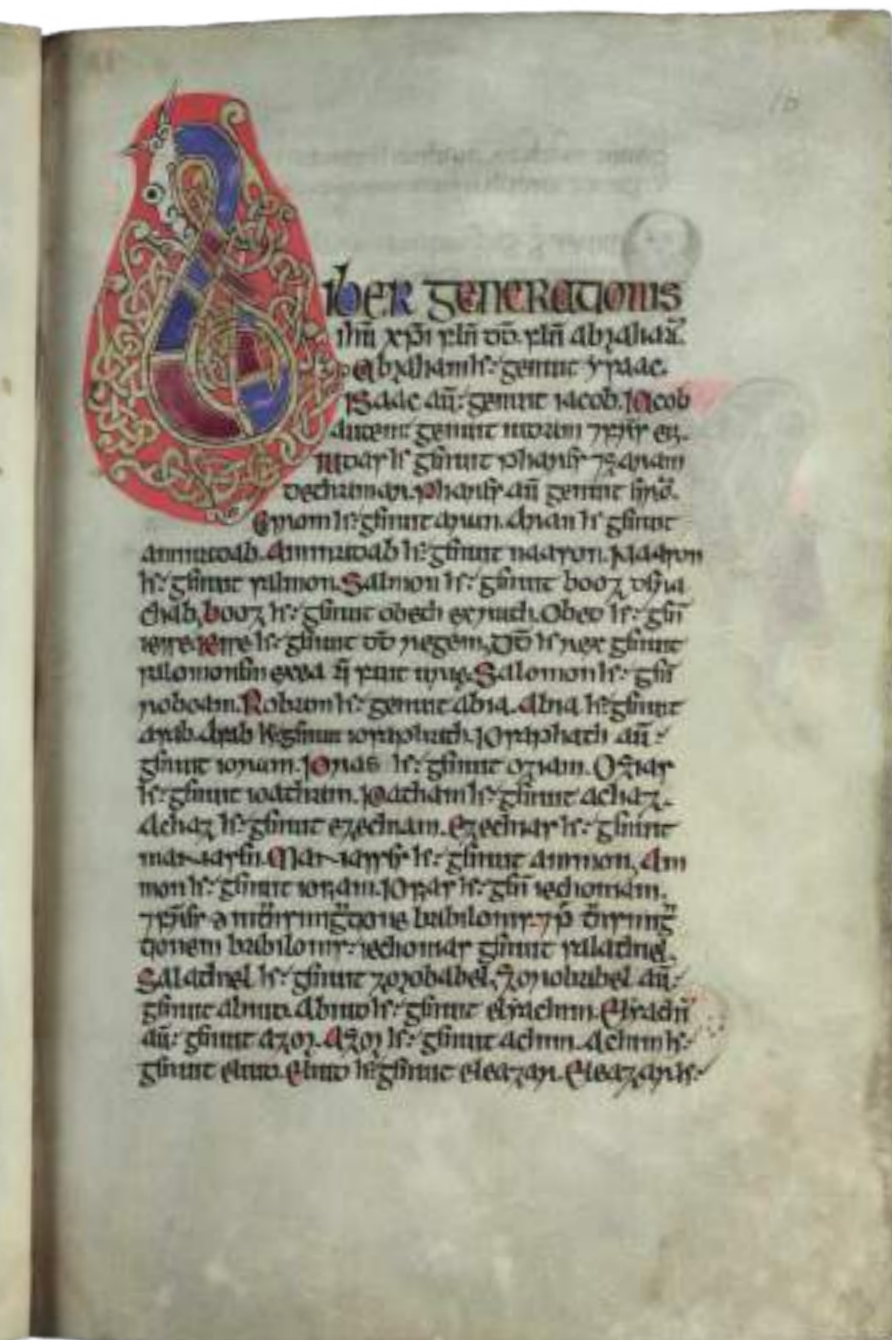 iber generationis
ihu xpi filii dd filii abraham
Abraham h: genuit ysaac.
ISaac au: genuit iacob. IAcob
autem genuit iudam ⁊
iudas h: genuit phares ⁊ zaram
dethamar. Phares au genuit
Esrom h: genuit aram. Aram h: genuit
aminadab. Aminadab h: genuit naason. Naason
h: genuit salmon. Salmon h: genuit booz
chab. booz h: genuit obed exruth. Obed h: gen
iesse. iesse h: genuit dd regem. DD h: rex genuit
salomonem exea fuit Salomon h: gen
roboam. Roboam h: genuit abia. Abia h: genuit
asab. Asab h: genuit iosaphath. IOsaphath au:
genuit ioram. IOras h: genuit oziam. Ozias
h: genuit ioatham. IOatham h: genuit achaz.
Achaz h: genuit ezechiam. Ezechias h: genuit
manassen. Manasses h: genuit ammon. Am
mon h: genuit iosiam. IOsias h: gen iechoniam.
babilonis ⁊
tionem babilonis: iechonias genuit salathiel.
Salathiel h: genuit zorobabel. Zorobabel au:
genuit abiud. Abiud h: genuit eliachim. Eliachi
au: genuit azor. Azor h: genuit achim. Achim h:
genuit eliud. Eliud h: genuit eleazar. Eleazar h: